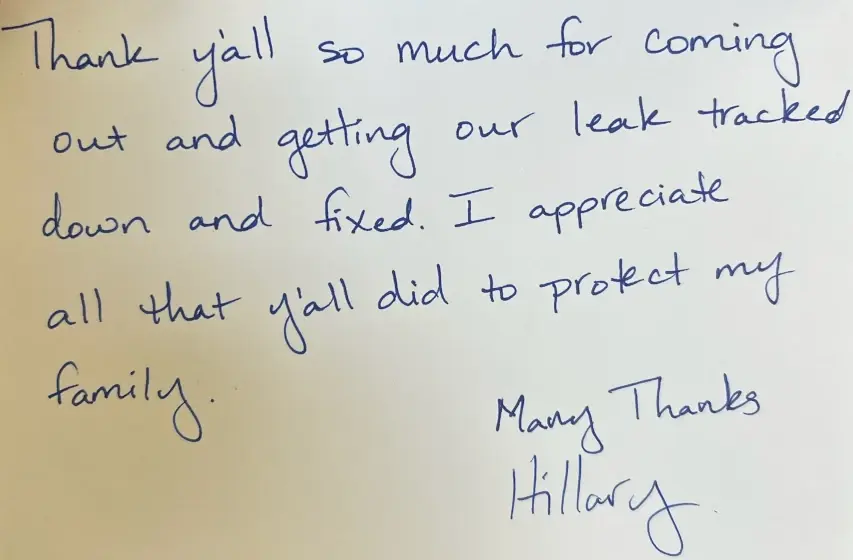 Thank y'all so much for coming
out and getting our leak tracked
down and fixed. I appreciate
all that y'all did to protect my
family.
Many Thanks
Hillary